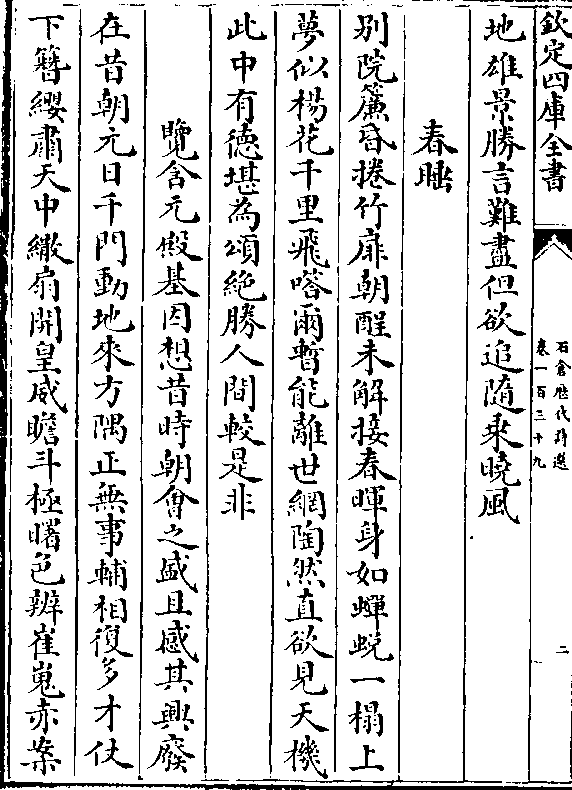 欽定四庫全書
石倉歴代詩選
卷一百三十九
二
地雄景勝言難盡但欲追隨乘曉風
春晝
别院簾昏捲竹扉朝酲未解接春暉身如蟬蛻一榻上
夢似楊花千里飛嗒爾暫能離世網陶然直欲見天機
此中有德堪為頌絶勝人間較是非
覽含元殿基因想昔時朝會之盛且感其興廢
在昔朝元日千門動地來方隅正無事輔相復多才仗
下簪纓肅天中繖扇開皇威瞻斗極曙色辨崔嵬赤案